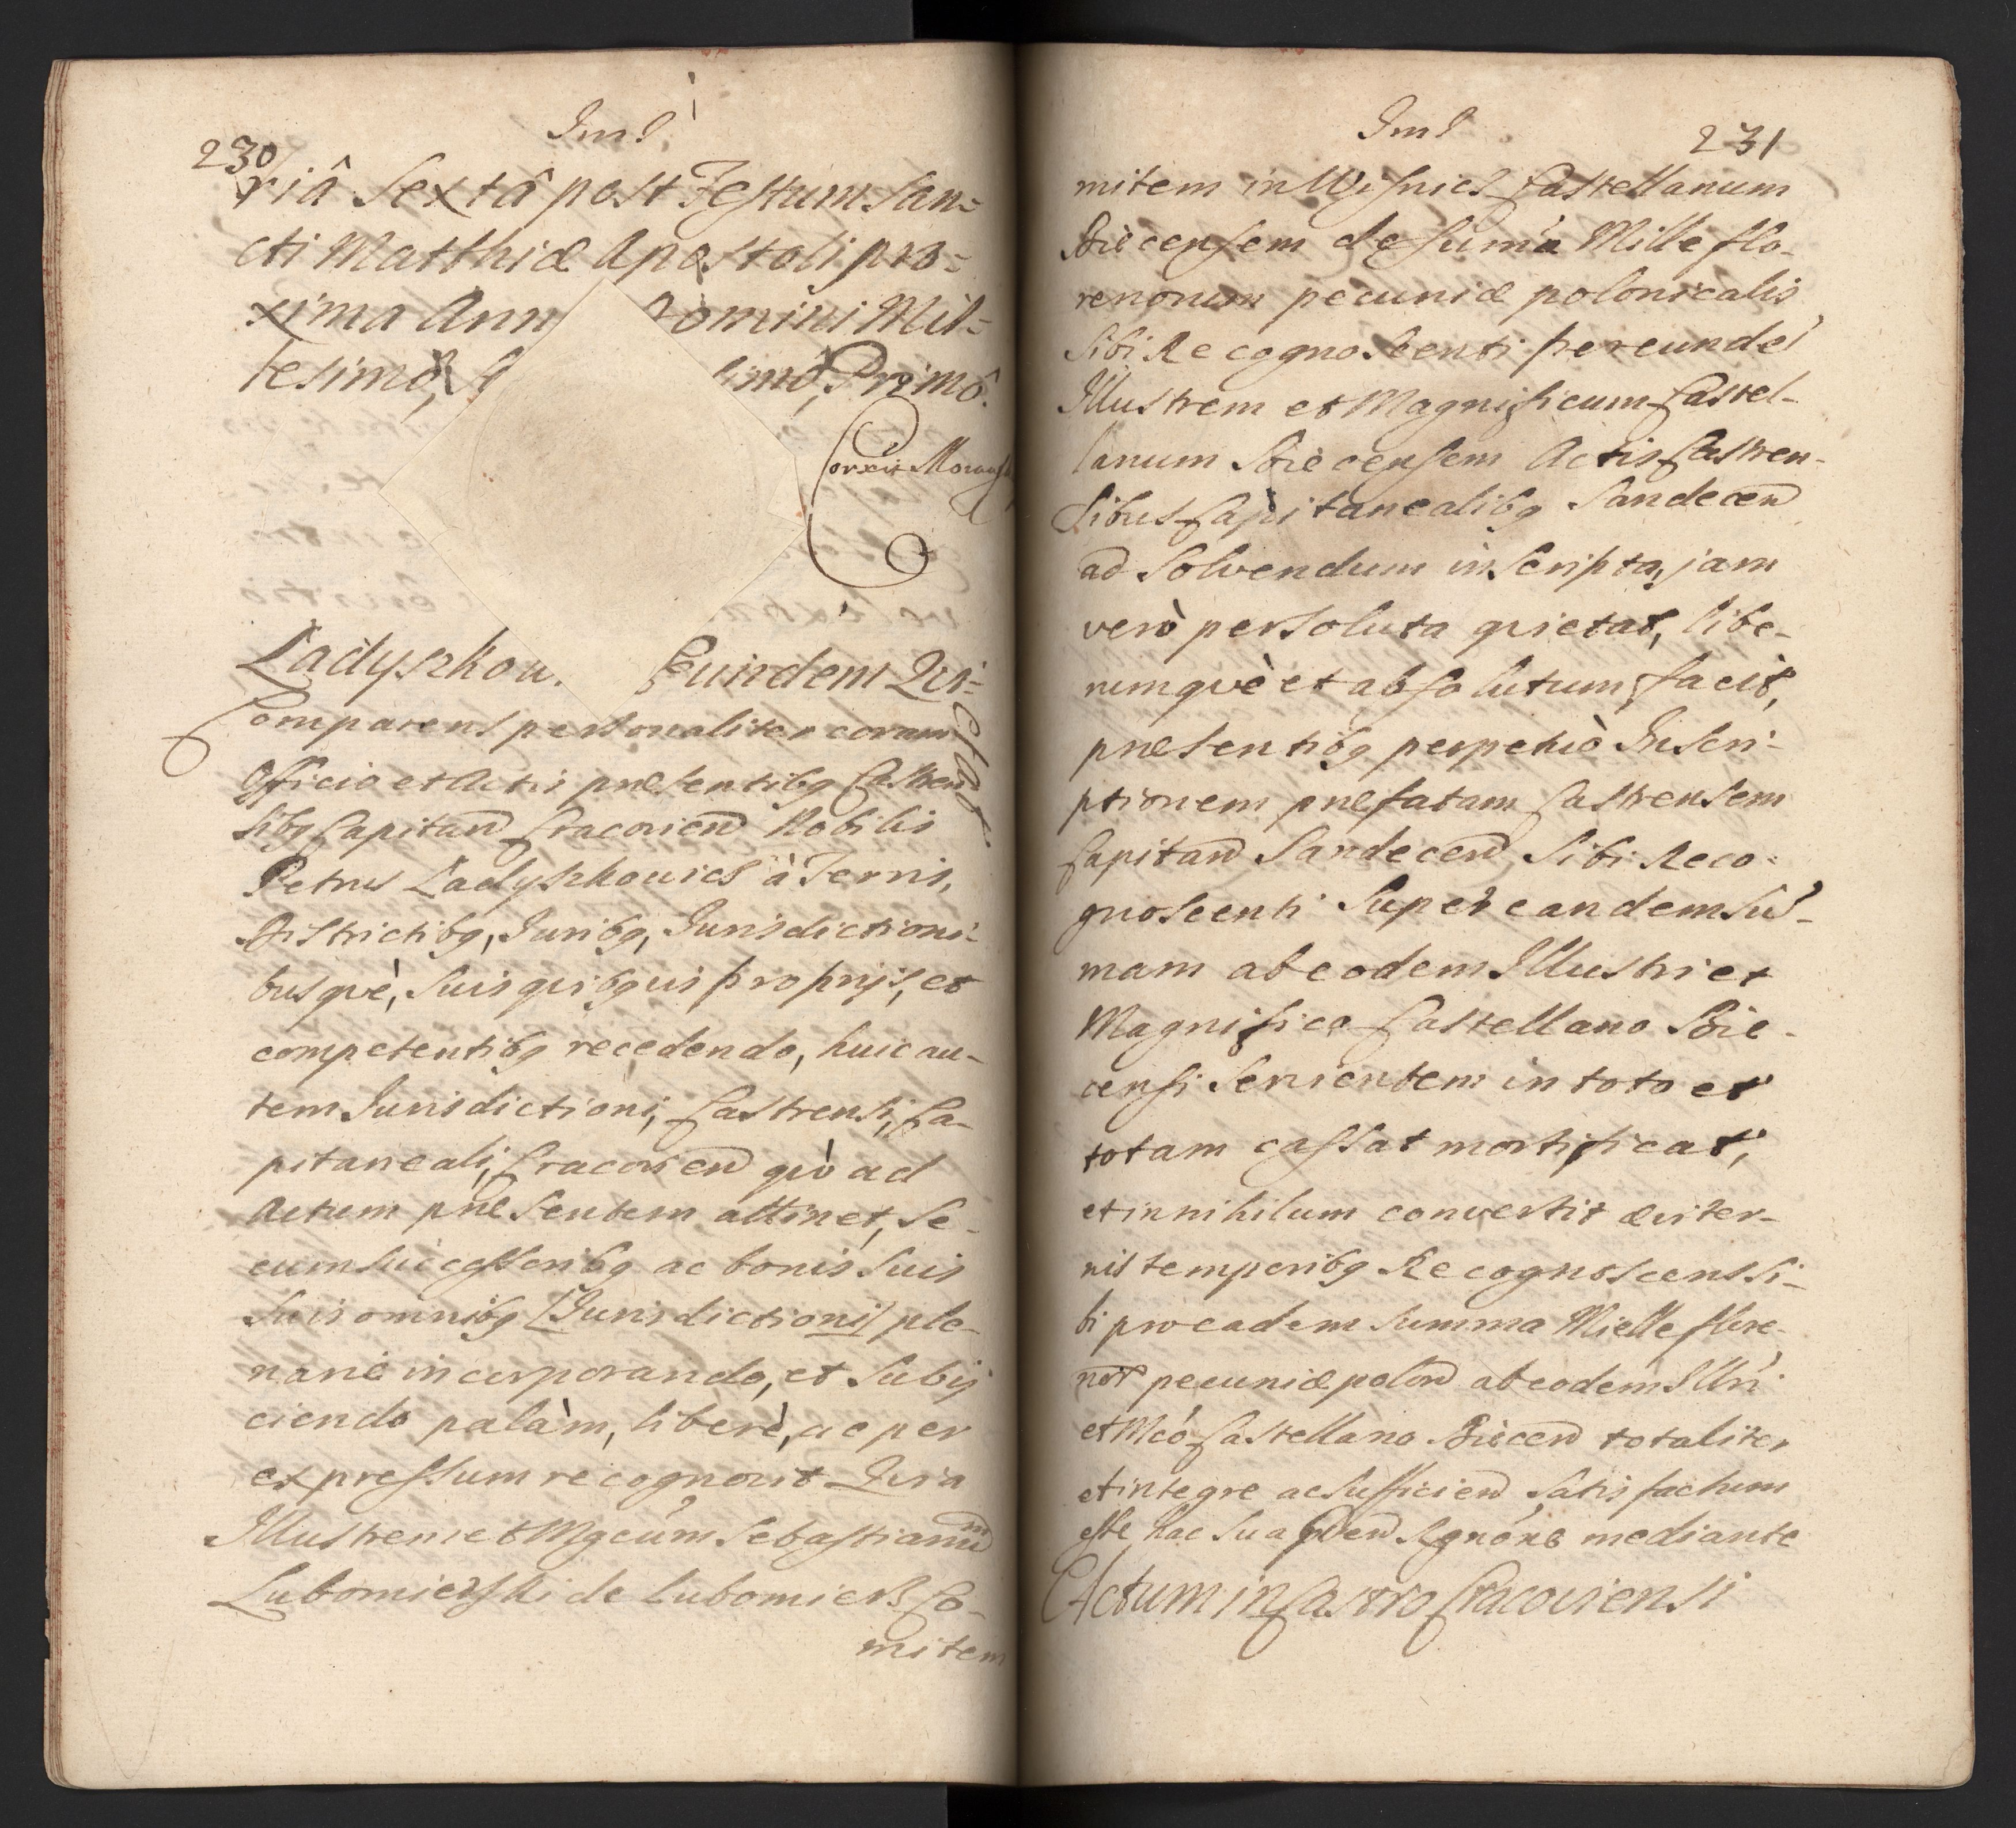 230
Jmł
riâ Sextâ post Festum San=
cti Matthiæ Apostoli pro=
xima Ann omini Mil=
lesimô, imô, Primô.
Correxit
Ladyszkow. Euindem Qui=
etat
Comparens personaliter coram
Officio et Actis præsentibq Castren
sibq Capitan Cracovien Nobilis
Petrus Ladyszkowicz à Terris,
Districtibq, Juribq, Jurisdictioni-
busqvè, Suis qvibqvis proprijs, et
competentibq recedendo, huic au-
tem Jurisdictioni, Castrensi, Ca-
pitaneali, Cracovien qvò ad
Actum præsentem attinet, Se-
cum Successoribq ac bonis Suis
Suis omnibq [Jurisdictioni] ple-
narie incorporando, et Subij
ciendo palàm, liberè, ac per
expressum recognovit Qvia
Illustrem et Mgcúm Sebastianum
Lubomierski de Lubomierz Co-
mitem
Jmł
231
mitem in Wisnicz Castellanum
Biecensem de Suma Mille flo-
renorum pecuniæ polonicalis
Sibi Recognoscenti per eunde
Illustrem et Magnificum Castel-
lanum Biecensem Actis Castren-
Sibus Capitanealibq Sandecen
ad Solvendum inscripta, jam
verò persoluta qvietat, libe-
rumqvè et absolutum facit,
præsentibq perpetuò Inscri-
ptionem præfatam Castrensem
Capitan Sandecen Sibi Reco-
gnoscenti Super eandem Su-
mam ab eodem Illustri et
Magnifico Castellano Bie-
censi Servientem in toto et
totam cassat mortificat,
et in nihilum convertit æviter-
nis temporibq Recognoscens Si-
bi pro eadem Summa Mielle flore-
nor pecuniæ polon ab eodem Illri
et Mcó Castellano Biècen totaliter
et integre ac Sufficien Satisfactum
esse hac Sua pñen Rgnóne mediante
Actum in Castro Cracoviensi